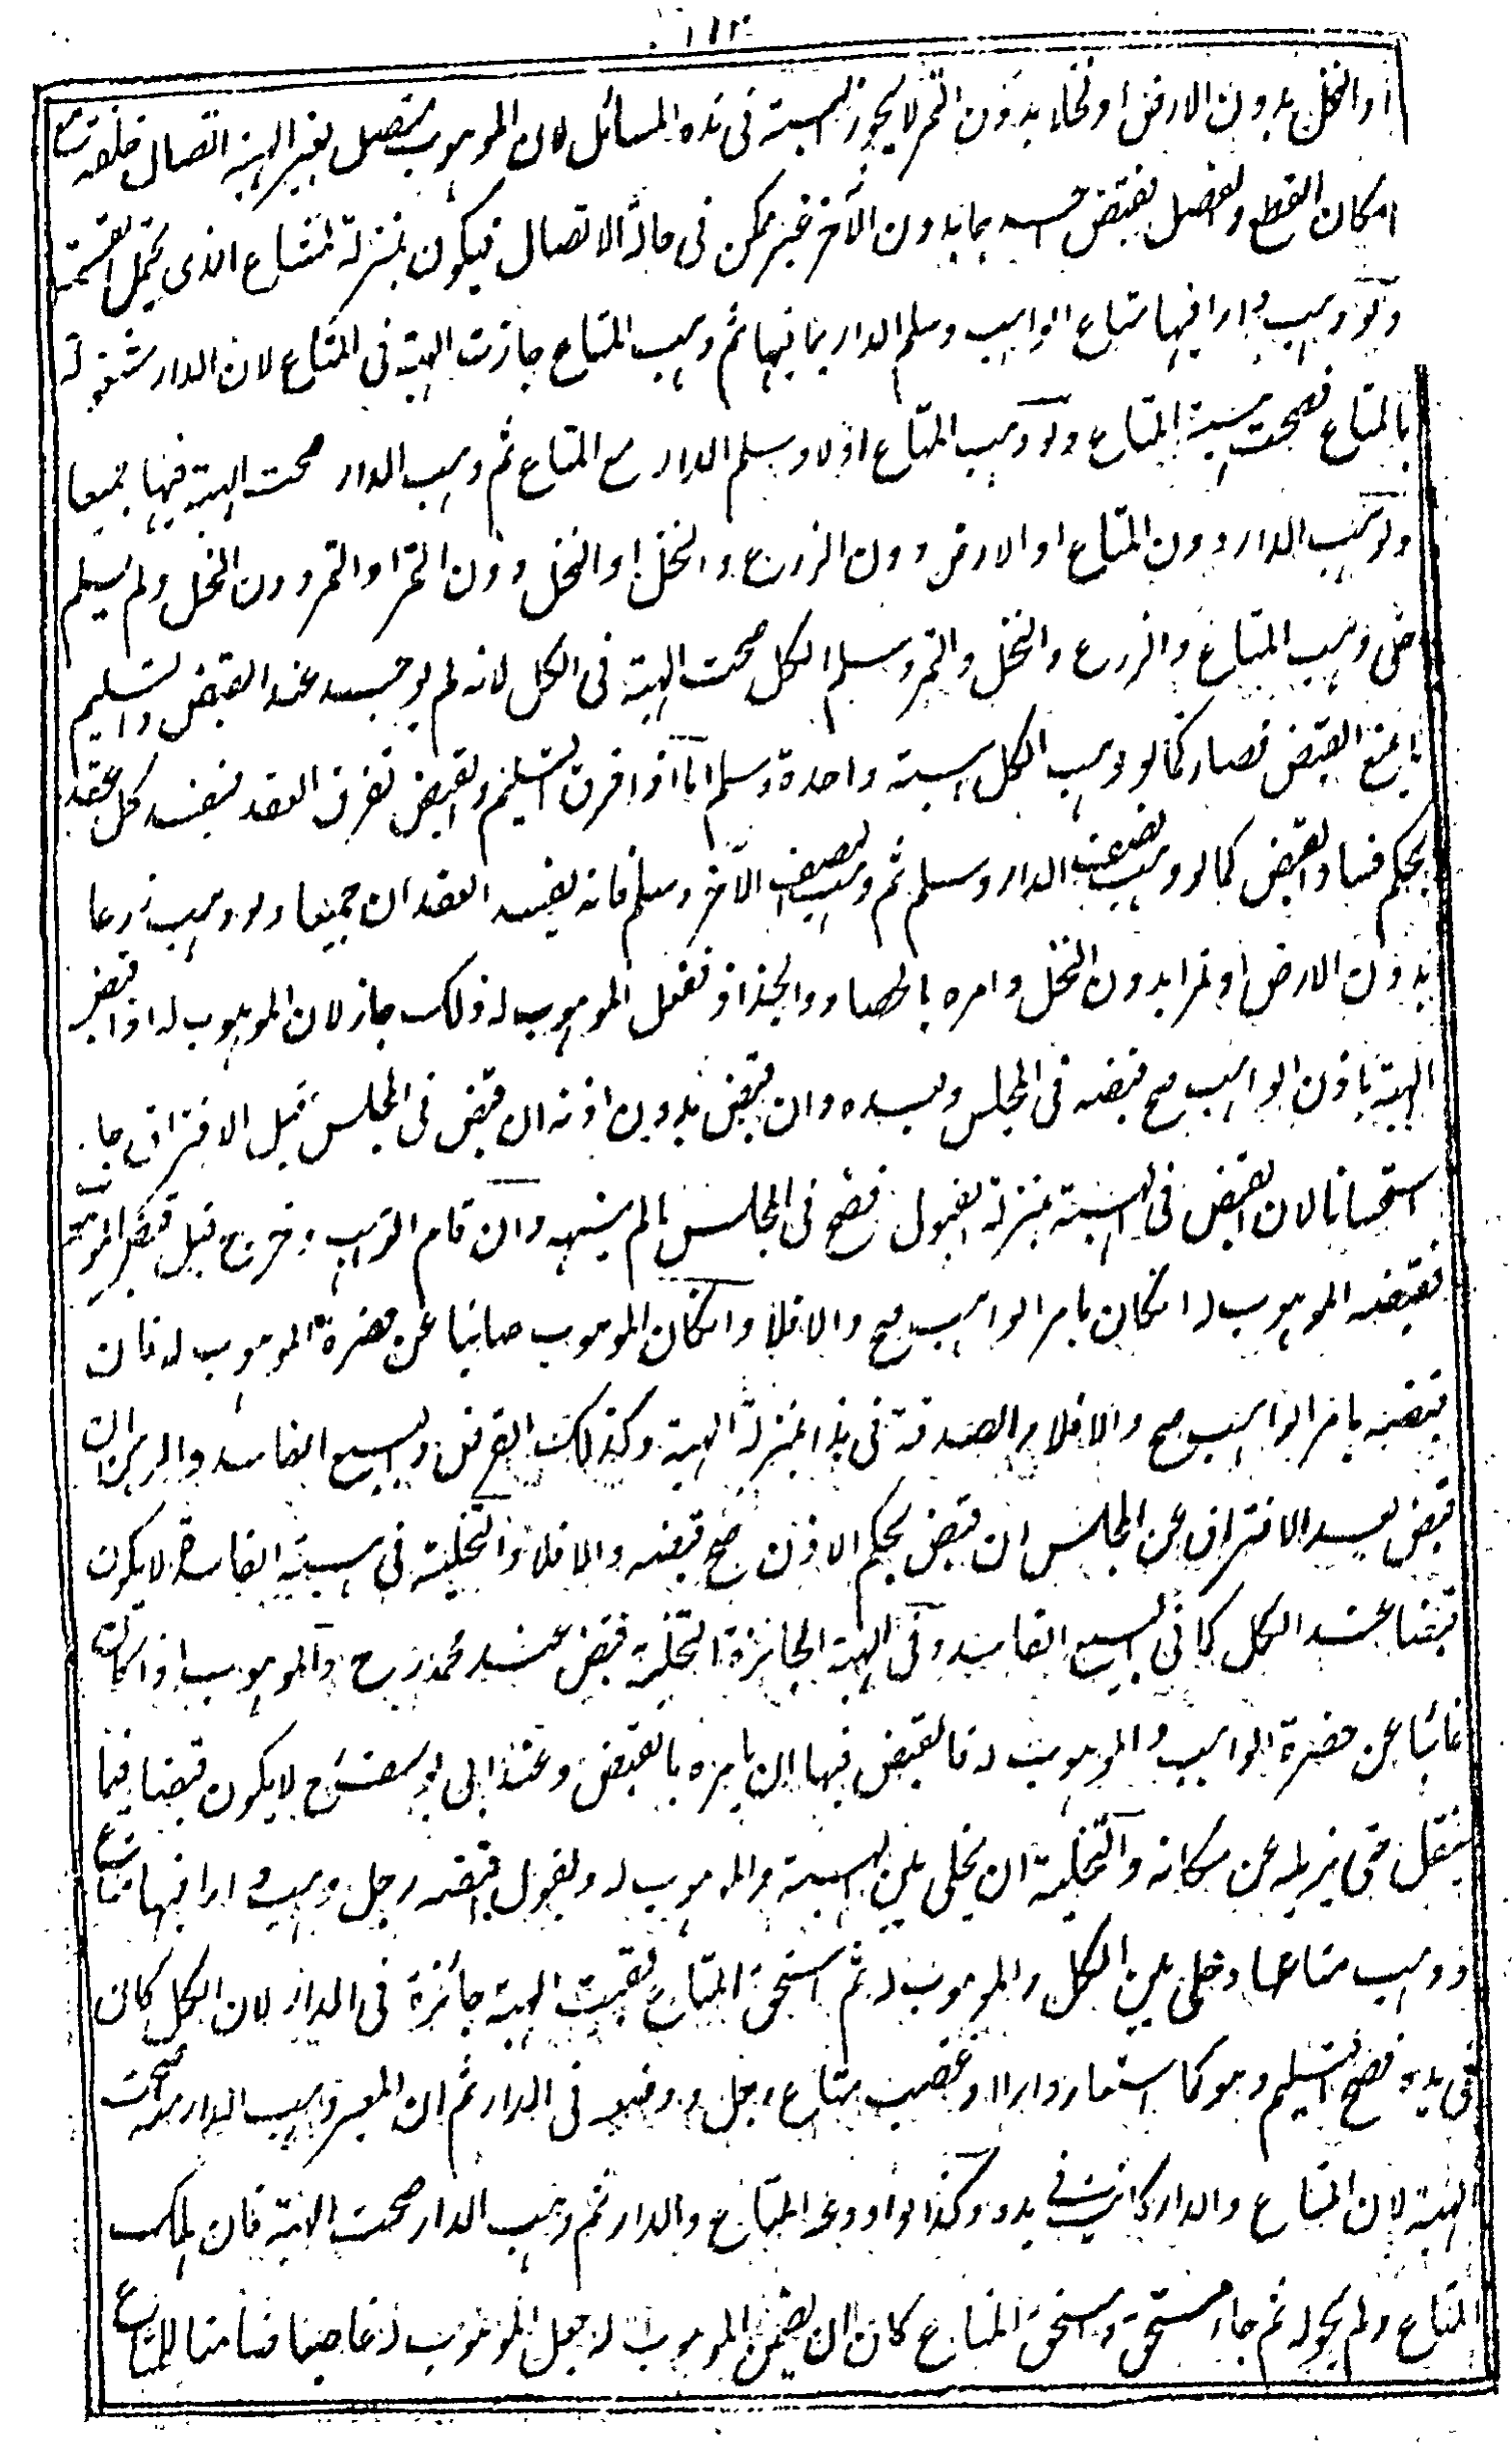 ١١٢
او النخل بدون الارض او نخلا بدون التمر لا يجوز الهبة فى هذه المسائل لان الموهوب متصل بغير الهبة اتصال خلقة مع
امكان القطع والفصل فقبض احدهما بدون الآخر غير ممكن فى حالة الاتصال فيكون بمنزلة المشاع الذى يحتمل القسمة
ولو وهب دارا فيها متاع الواهب وسلم الدار بما فيها ثم وهب المتاع جازت الهبة فى المتاع لان الدار مشغولة
بالمتاع فصحت هبة المتاع ولو وهب المتاع اولا وسلم الدار مع المتاع ثم وهب الدار صحت الهبة فيها جميعا
ولو وهب الدار دون المتاع او الارض دون الزرع والنخل او النخل دون التمر او التمر دون النخل ولم يسلم
حتى وهب المتاع والزرع والنخل والتمر وسلم الكل صحت الهبة فى الكل لانه لم يوجد عند القبض والتسليم
ما يمنع القبض فصار كما لو وهب الكل هبة واحدة وسلم اما اذا فرق التسليم والقبض تفرق العقد فيفسد كل عقد
بحكم فساد القبض كما لو وهب نصف الدار وسلم ثم وهب النصف الآخر وسلم فانه يفسد العقدان جميعا ولو وهب زرعا
بدون الارض او تمرا بدون النخل وامره بالحصاد والجذاذ ففعل الموهوب له ذلك جاز لان الموهوب له اذا قبض
الهبة باذن الواهب صح قبضه فى المجلس وبعده وان قبض بدون اذنه ان قبض فى المجلس قبل الافتراق جاز
استحسانا لان القبض فى الهبة بمنزلة القبول فصح فى المجلس ما لم ينهه وان قام الواهب وخرج قبل قبض الموهوب
فقبضه الموهوب له انكان بامر الواهب صح والا فلا وانكان الموهوب غائبا عن حضرة الموهوب له فان
قبضه بامر الواهب صح والا فلا والصدقة فى هذا بمنزلة الهبة وكذلك القرض والبيع الفاسد والرهن ان
قبض بعد الافتراق عن المجلس ان قبض بحكم الاذن صح قبضه والا فلا والتخلية فى هبة الفاسدة لا يكون
قبضا عند الكل كما فى البيع الفاسد وفى الهبة الجائزة التخلية قبض عند محمد رح والموهوب اذا كان
غائبا عن حضرة الواهب والموهوب له فالقبض فيها ان يامره بالقبض وعند ابى يوسف رح لا يكون قبضا فيما
ينقل حتى يزيله عن مكانه والتخلية ان يخلى بين الهبة والموهوب له ويقول اقبضه رجل وهب دارا فيها متاع
ووهب متاعها وخلى بين الكل والموهوب له ثم استحق المتاع بقيت الهبة جائزة فى الدار لان الكل كان
فى يده فصح التسليم وهو كما استعار دارا او غصب متاع رجل ووضعه فى الدار ثم ان المعير وهب الدار منه صحت
الهبة لان المتاع والدار كانت فى يده وكذا لو اودعه المتاع والدار ثم وهب الدار صحت الهبة فان هلك
المتاع ولم يحوله ثم جاء مستحق واستحق المتاع كان ان يضمن الموهوب له جعل الموهوب له غاصبا ضامنا للمتاع